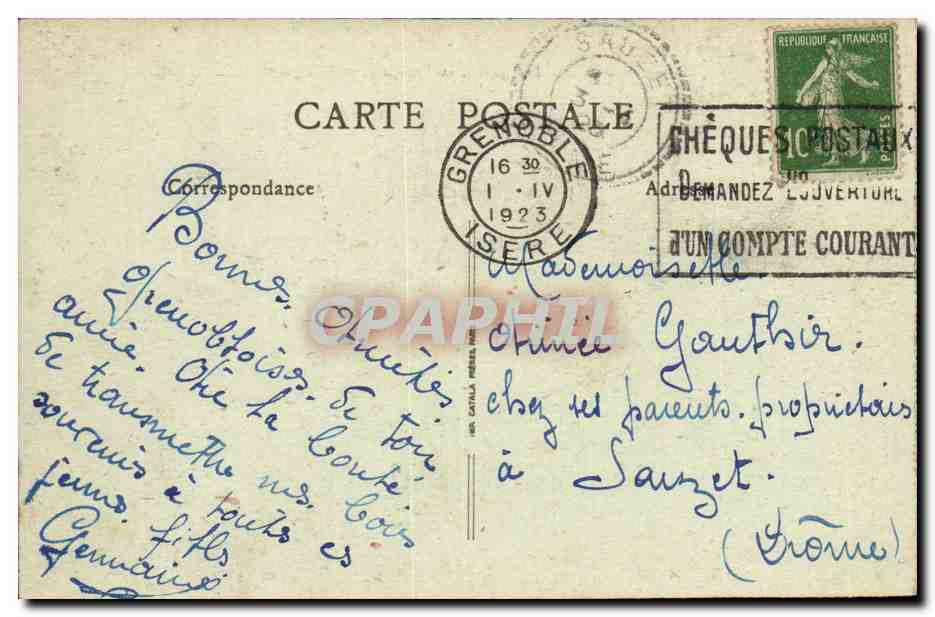 CARTE POSTALE
SAUZET
DROME
GRENOBLE
16 30
1 · IV
1923
ISERE
REPUBLIQUE FRANÇAISE
10
POSTES
CHÈQUES POSTAUX
DEMANDEZ L'OUVERTURE
d'UN COMPTE COURANT
Correspondance
Adresse
Bonnes Amitiés
grenobloises. De ton
amie Aie la bonté
de transmettre nos bons
souvenirs à toutes ces
jeunes filles
Germaine
IMP. CATALA FRÈRES, PARIS
Mademoiselle
Aimée Gauthier
chez ses parents. propriétaires
à Sauzet.
(Drôme)
CPAPHIL